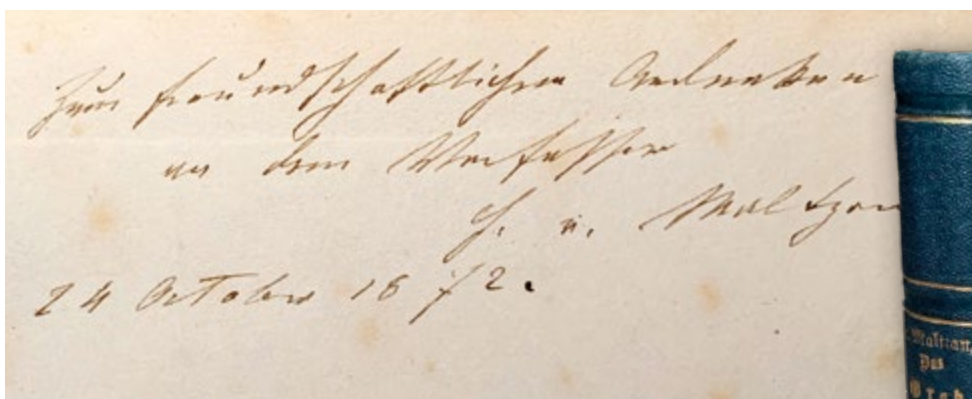 Zum freundschaftlichen Andenken
an den Verfasser
H. v. Maltzan
24 October 1872.
Maltzan,
Das
Grab